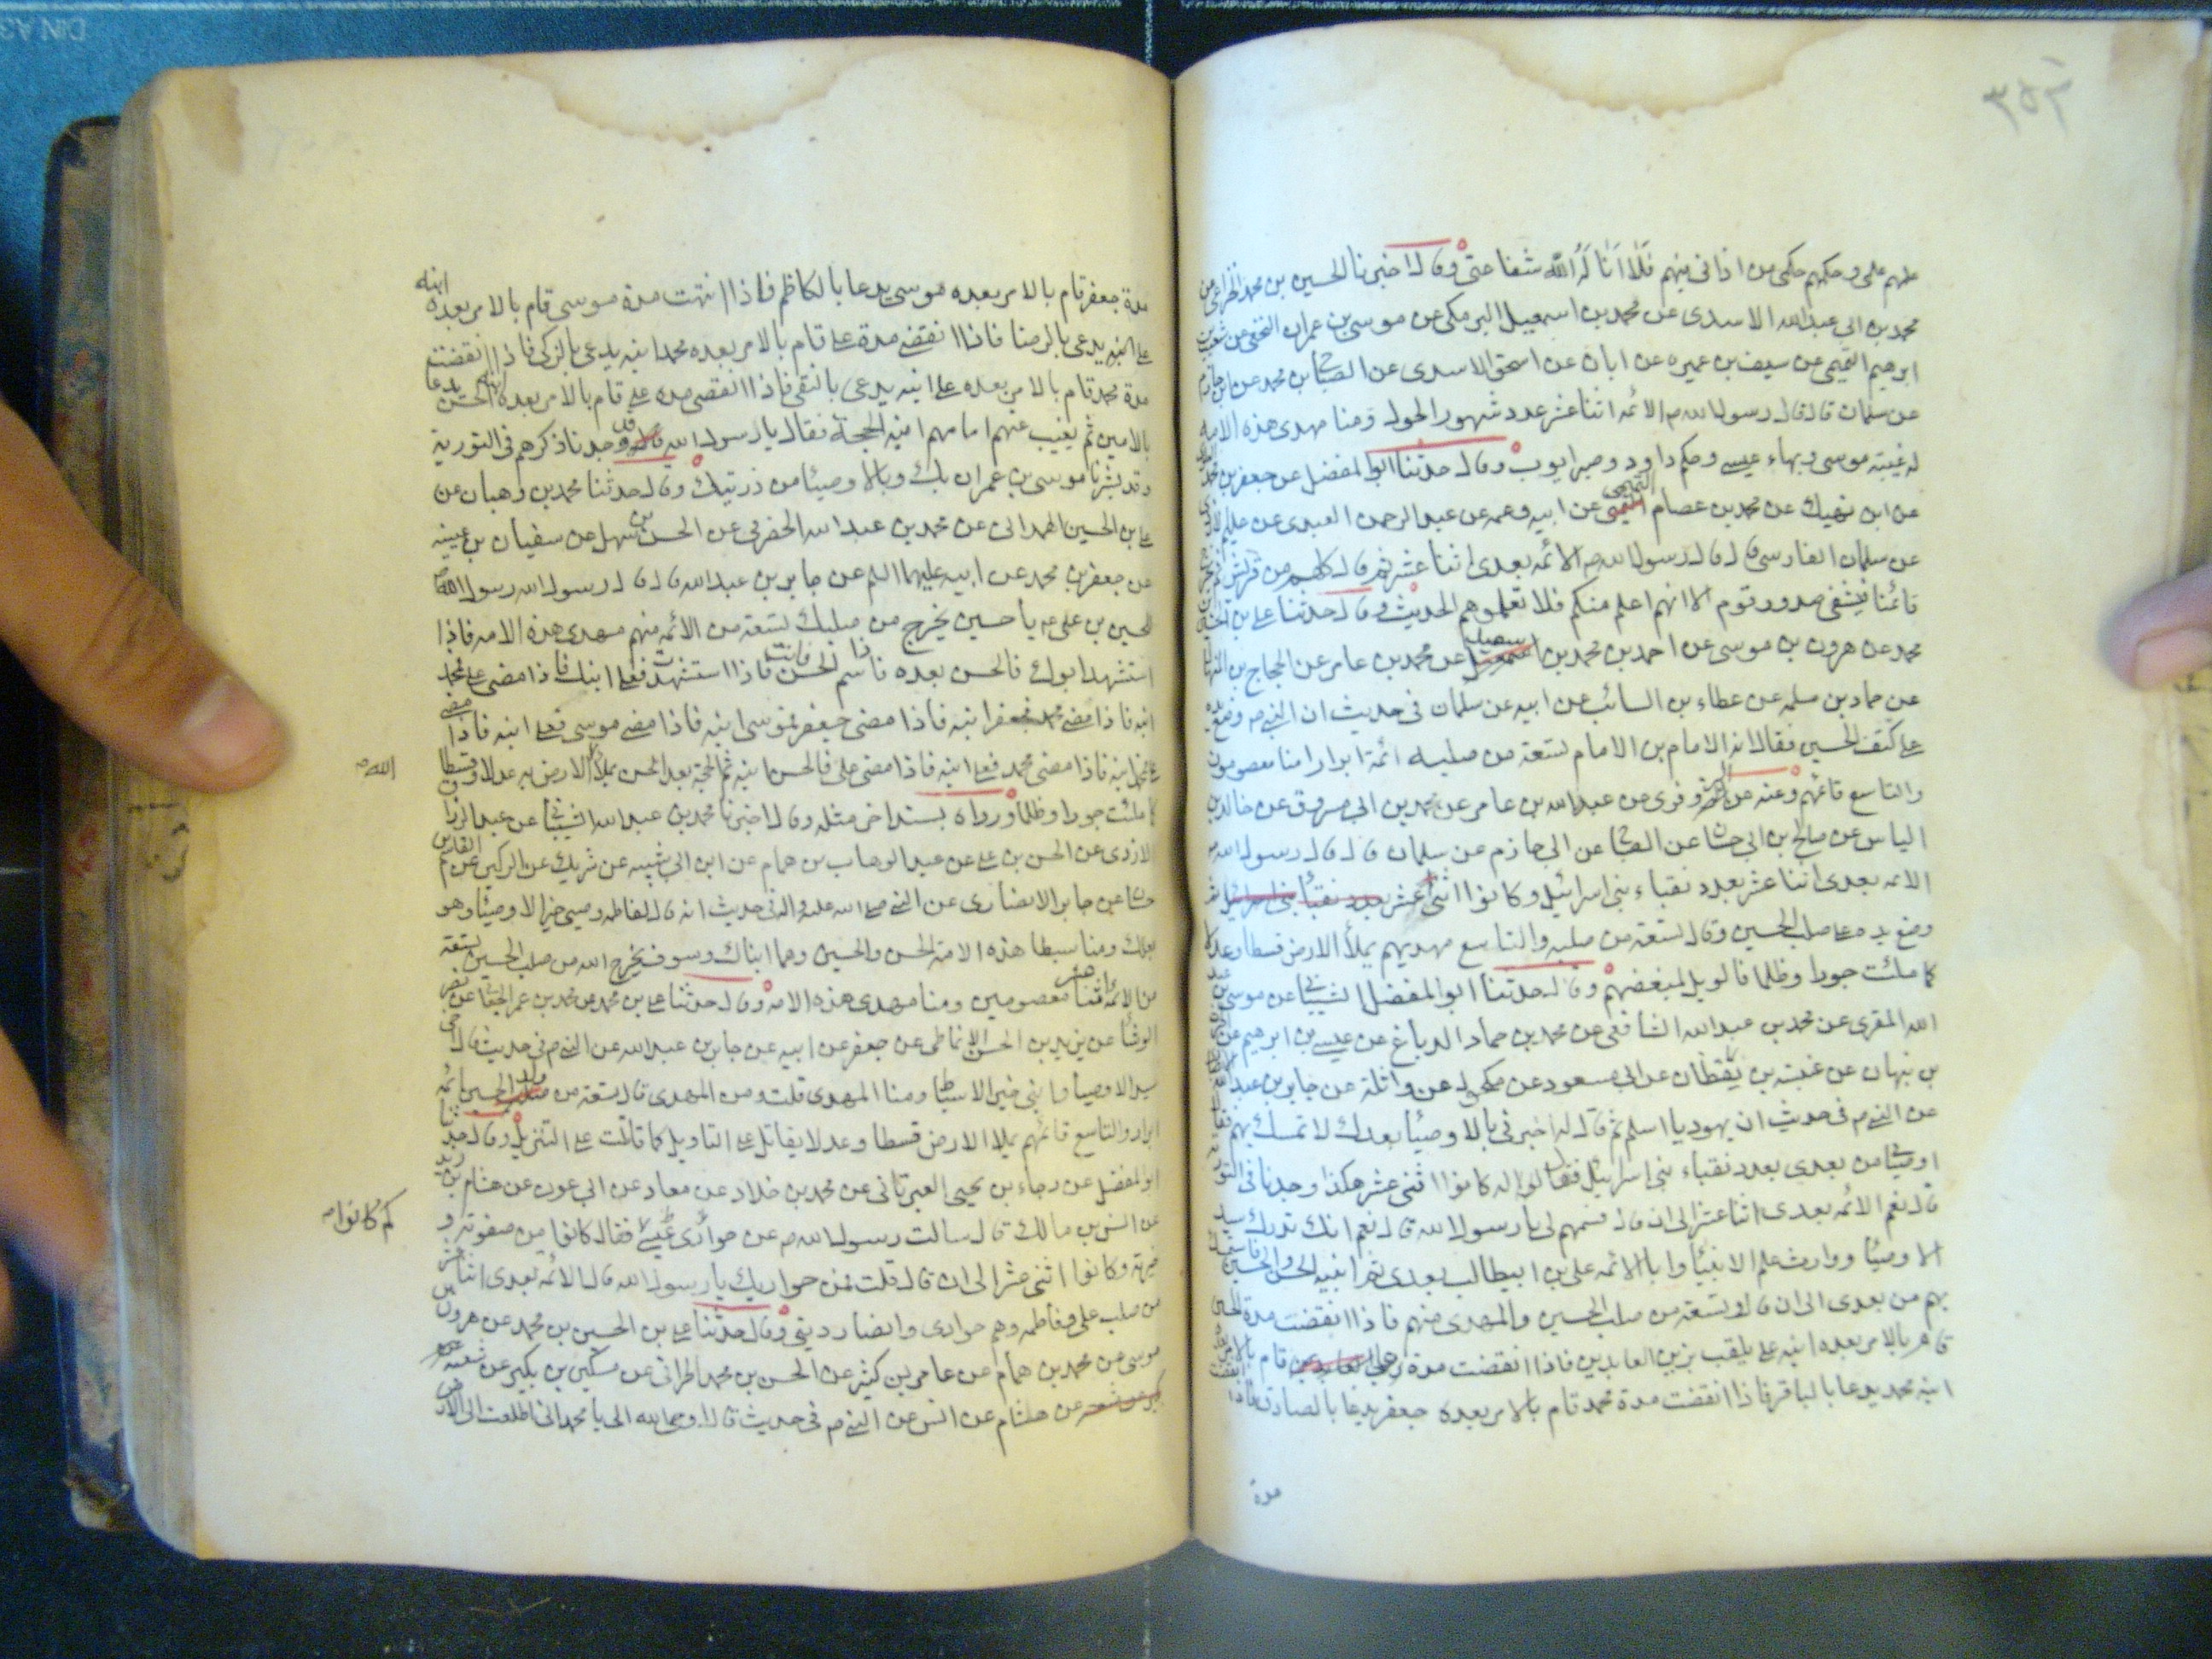 ٣٥٢
علمهم علمى وحكمهم حكمى من اذانى فيهم فلا اناله الله شفاعتى وقال اخبرنا الحسين بن محمد الخزاعى عن
محمد بن ابى عبد الله الاسدى عن محمد بن اسمعيل البرمكى عن موسى بن عمران النخعى عن شعيب بن
ابرهيم التميمى عن سيف بن عميره عن ابان عن اسحق الاسدى عن الصباح بن محمد عن ابى حازم
عن سلمان قال قال رسول الله ص الائمه اثنا عشر عدد شهور الحول ومنا مهدى هذه الامه
له غيبته موسى وبهاء عيسى وحكم داود وصبر ايوب وقال حدثنا ابو المفضل عن جعفر بن محمد
عن ابن نهيك عن محمد بن عصام عن ابيه وعمه عن عبد الرحمن العبدى عن عليم الازدى
عن سلمان الفارسى قال قال رسول الله ص الائمه بعدى اثنا عشر ثم قال كلهم من قريش ثم يخرج
قائمنا فيشفى صدور قوم الا انهم اعلم منكم فلا تعلموهم الحديث وقال حدثنا على بن الحسين
محمد عن هرون بن موسى عن احمد بن محمد بن سعيد عن محمد بن عامر عن الحجاج بن المنهال
عن حماد بن سلمه عن عطاء بن السائب عن ابيه عن سلمان فى حديث ان النبى ص وضع يده
على كتف الحسين فقال انه الامام بن الامام تسعة من صلبه ائمة ابرار امنا معصومون
والتاسع قائمهم وعنه عن عبد الله بن عامر عن محمد بن ابى مسروق عن خالد بن
الياس عن صالح بن ابى حسان عن الصباح عن ابى حازم عن سلمان قال قال رسول الله ص
الائمه بعدى اثنا عشر بعدد نقباء بنى اسرائيل وكانوا اثنى عشر ثم
وضع يده على صلب الحسين وقال تسعة من صلبه والتاسع مهديهم يملأ الارض قسطا وعدلا
كما ملئت جورا وظلما فالويل لمبغضهم وقال حدثنا ابو المفضل الشيبانى عن موسى بن عبيد
الله المقرى عن محمد بن عبد الله الشافعى عن محمد بن حماد الدباغ عن عيسى بن ابرهيم عن
بن نبهان عن عتبه بن يقظان عن ابى سعود عن مكحول عن واثلة عن جابر بن عبد الله
عن النبى ص فى حديث ان يهوديا اسلم ثم قال له اخبرنى بالاوصيأ بعدك لاتمسك بهم فقال
اوصيائى من بعدى بعدد نقباء بنى اسرائيل فقال له كانوا اثنى عشر هكذا وجدنا فى التورية
قال نعم الائمه بعدى اثنا عشر الى ان قال فسمهم لى يا رسول الله قال نعم انك تدرك سيد
الاوصيأ ووارث علم الانبيأ وابا الائمه على بن ابيطالب بعدى ثم ابنيه الحسن والحسين فاستمسك
بهم من بعدى الى ان قال تسعة من صلب الحسين والمهدى منهم فاذا انقضت مدة الحسين
قام بالامر بعده ابنه على يلقب بزين العابدين فاذا انقضت مدة على قام بالامر بعده
ابنه محمد يدعا بالباقر فاذا انقضت مدة محمد قام بالامر بعده جعفر يدعا بالصادق فاذا انقضت
مدة
مدة جعفر قام بالامر بعده موسى يدعا بالكاظم فاذا انتهت مدة موسى قام بالامر بعده ابنه
على ابنه يدعى بالرضا فاذا انقضى مدة على قام بالامر بعده محمد ابنه يدعى بالزكى فاذا انقضت
مدة محمد قام بالامر بعده على ابنه يدعى بالنقى فاذا انقضى مدة على قام بالامر بعده ابنه الحسن يدعا
بالامين ثم يغيب عنهم امامهم ابنه الحجة فقال يا رسول الله قد وجدنا ذكرهم فى التورية
وقد بشرنا موسى بن عمران بك وبالاوصيأ من ذريتك وقال حدثنا محمد بن وهبان عن
على بن الحسين الهمدانى عن محمد بن عبد الله الحضرمى عن الحسن بن سهل عن سفيان بن عيينه
عن جعفر بن محمد عن ابيه عليهما السلم عن جابر بن عبد الله قال قال رسول الله رسول الله ص
للحسين بن على ع يا حسين يخرج من صلبك تسعة من الائمه منهم مهدى هذه الامه فاذا
استشهد ابوك فالحسن بعده فاذا سم الحسن فانت فاذا استشهدت فعلى ابنك فاذا مضى على فمحمد
ابنه فاذا مضى محمد فجعفر ابنه فاذا مضى جعفر فموسى ابنه فاذا مضى موسى فعلى ابنه فاذا مضى
على فمحمد ابنه فاذا مضى محمد فعلى ابنه فاذا مضى على فالحسن ابنه ثم الحجة بعد الحسن يملأ الله الارض به عدلا وقسطا
كما ملئت جورا وظلما ورواه بسند اخر مثله وقال اخبرنا محمد بن عبد الله الشيبانى عن عبد الرزاق
الازدى عن الحسن بن على عن عبد الوهاب بن همام عن ابن ابى شيبه عن شريك عن الركين عن القاسم بن
حسان عن جابر الانصارى عن النبى صلى الله عليه واله فى حديث انه قال لفاطمه وصيى خير الاوصيأ وهو
بعلك ومنا سبطا هذه الامه الحسن والحسين وهما ابناك وسوف يخرج الله من صلب الحسين تسعة
من الائمه امناء معصومين ومنا مهدى هذه الامه وقال حدثنا على بن محمد عن محمد بن عمر الجعابى عن نصر
الوشأ عن يزيد بن الحسن الانماطى عن جعفر عن ابيه عن جابر بن عبد الله عن النبى ص فى حديث قال
سيد الاوصيأ وابنى خير الاسباط ومنا المهدى قلت ومن المهدى قال تسعة من صلب الحسين ائمه
ابرار والتاسع قائمهم يملا الارض قسطا وعدلا يقاتل على التاويل كما قاتلت على التنزيل وقال حدثنا
ابو المفضل عن رجاء بن يحيى العبرتائى عن محمد بن خلاد عن معاد عن ابى عون عن هشام بن زيد
عن انس بن مالك قال سالت رسول الله ص عن حوارى عيسى كم كانوا فقال كانوا من صفوته و
خيرته وكانوا اثنى عشر الى ان قال قلت فمن حواريك يا رسول الله قال الائمه بعدى اثنا عشر
من صلب على وفاطمه وهم حوارى وانصار دينى وقال حدثنا على بن الحسين بن محمد عن هرون بن
موسى عن محمد بن همام عن عامر بن كثير عن الحسن بن محمد عن مسكين بن بكير عن شعبه
عن هشام عن انس عن النبى ص فى حديث قال اوحى الله الى يا محمد انى اطلعت الى الارض